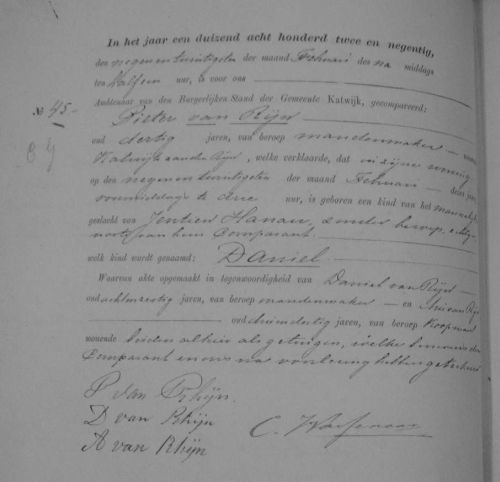 In het jaar een duizend acht honderd twee en negentig,
den negenentwintigsten der maand Februari des na middags
ten half een ure, is voor ons
Ambtenaar van den Burgerlijken Stand der Gemeente Katwijk, gecompareerd:
№ 45 Pieter van Rijn
oud dertig jaren, van beroep mandenmaker
Katwijk aan den Rijn, welke verklaarde, dat in zijne woning
op den negenentwintigsten der maand Februari dezes jaars
voormiddags te drie ure, is geboren een kind van het mannelijk
geslacht van Jentien Hanau, zonder beroep, echtge-
noote van hem Comparant.
welk kind wordt genaamd: Daniel
Waarvan akte opgemaakt in tegenwoordigheid van Daniel van Rijn
oud achtenzestig jaren, van beroep mandenmaker en van Rijn
oud drieendertig jaren, van beroep koopman
wonende beiden alhier als getuigen, welke benevens den
Comparant en ons na voorlezing hebben geteekend
P van Rhijn.
D van Rhijn
A van Rhijn
C.